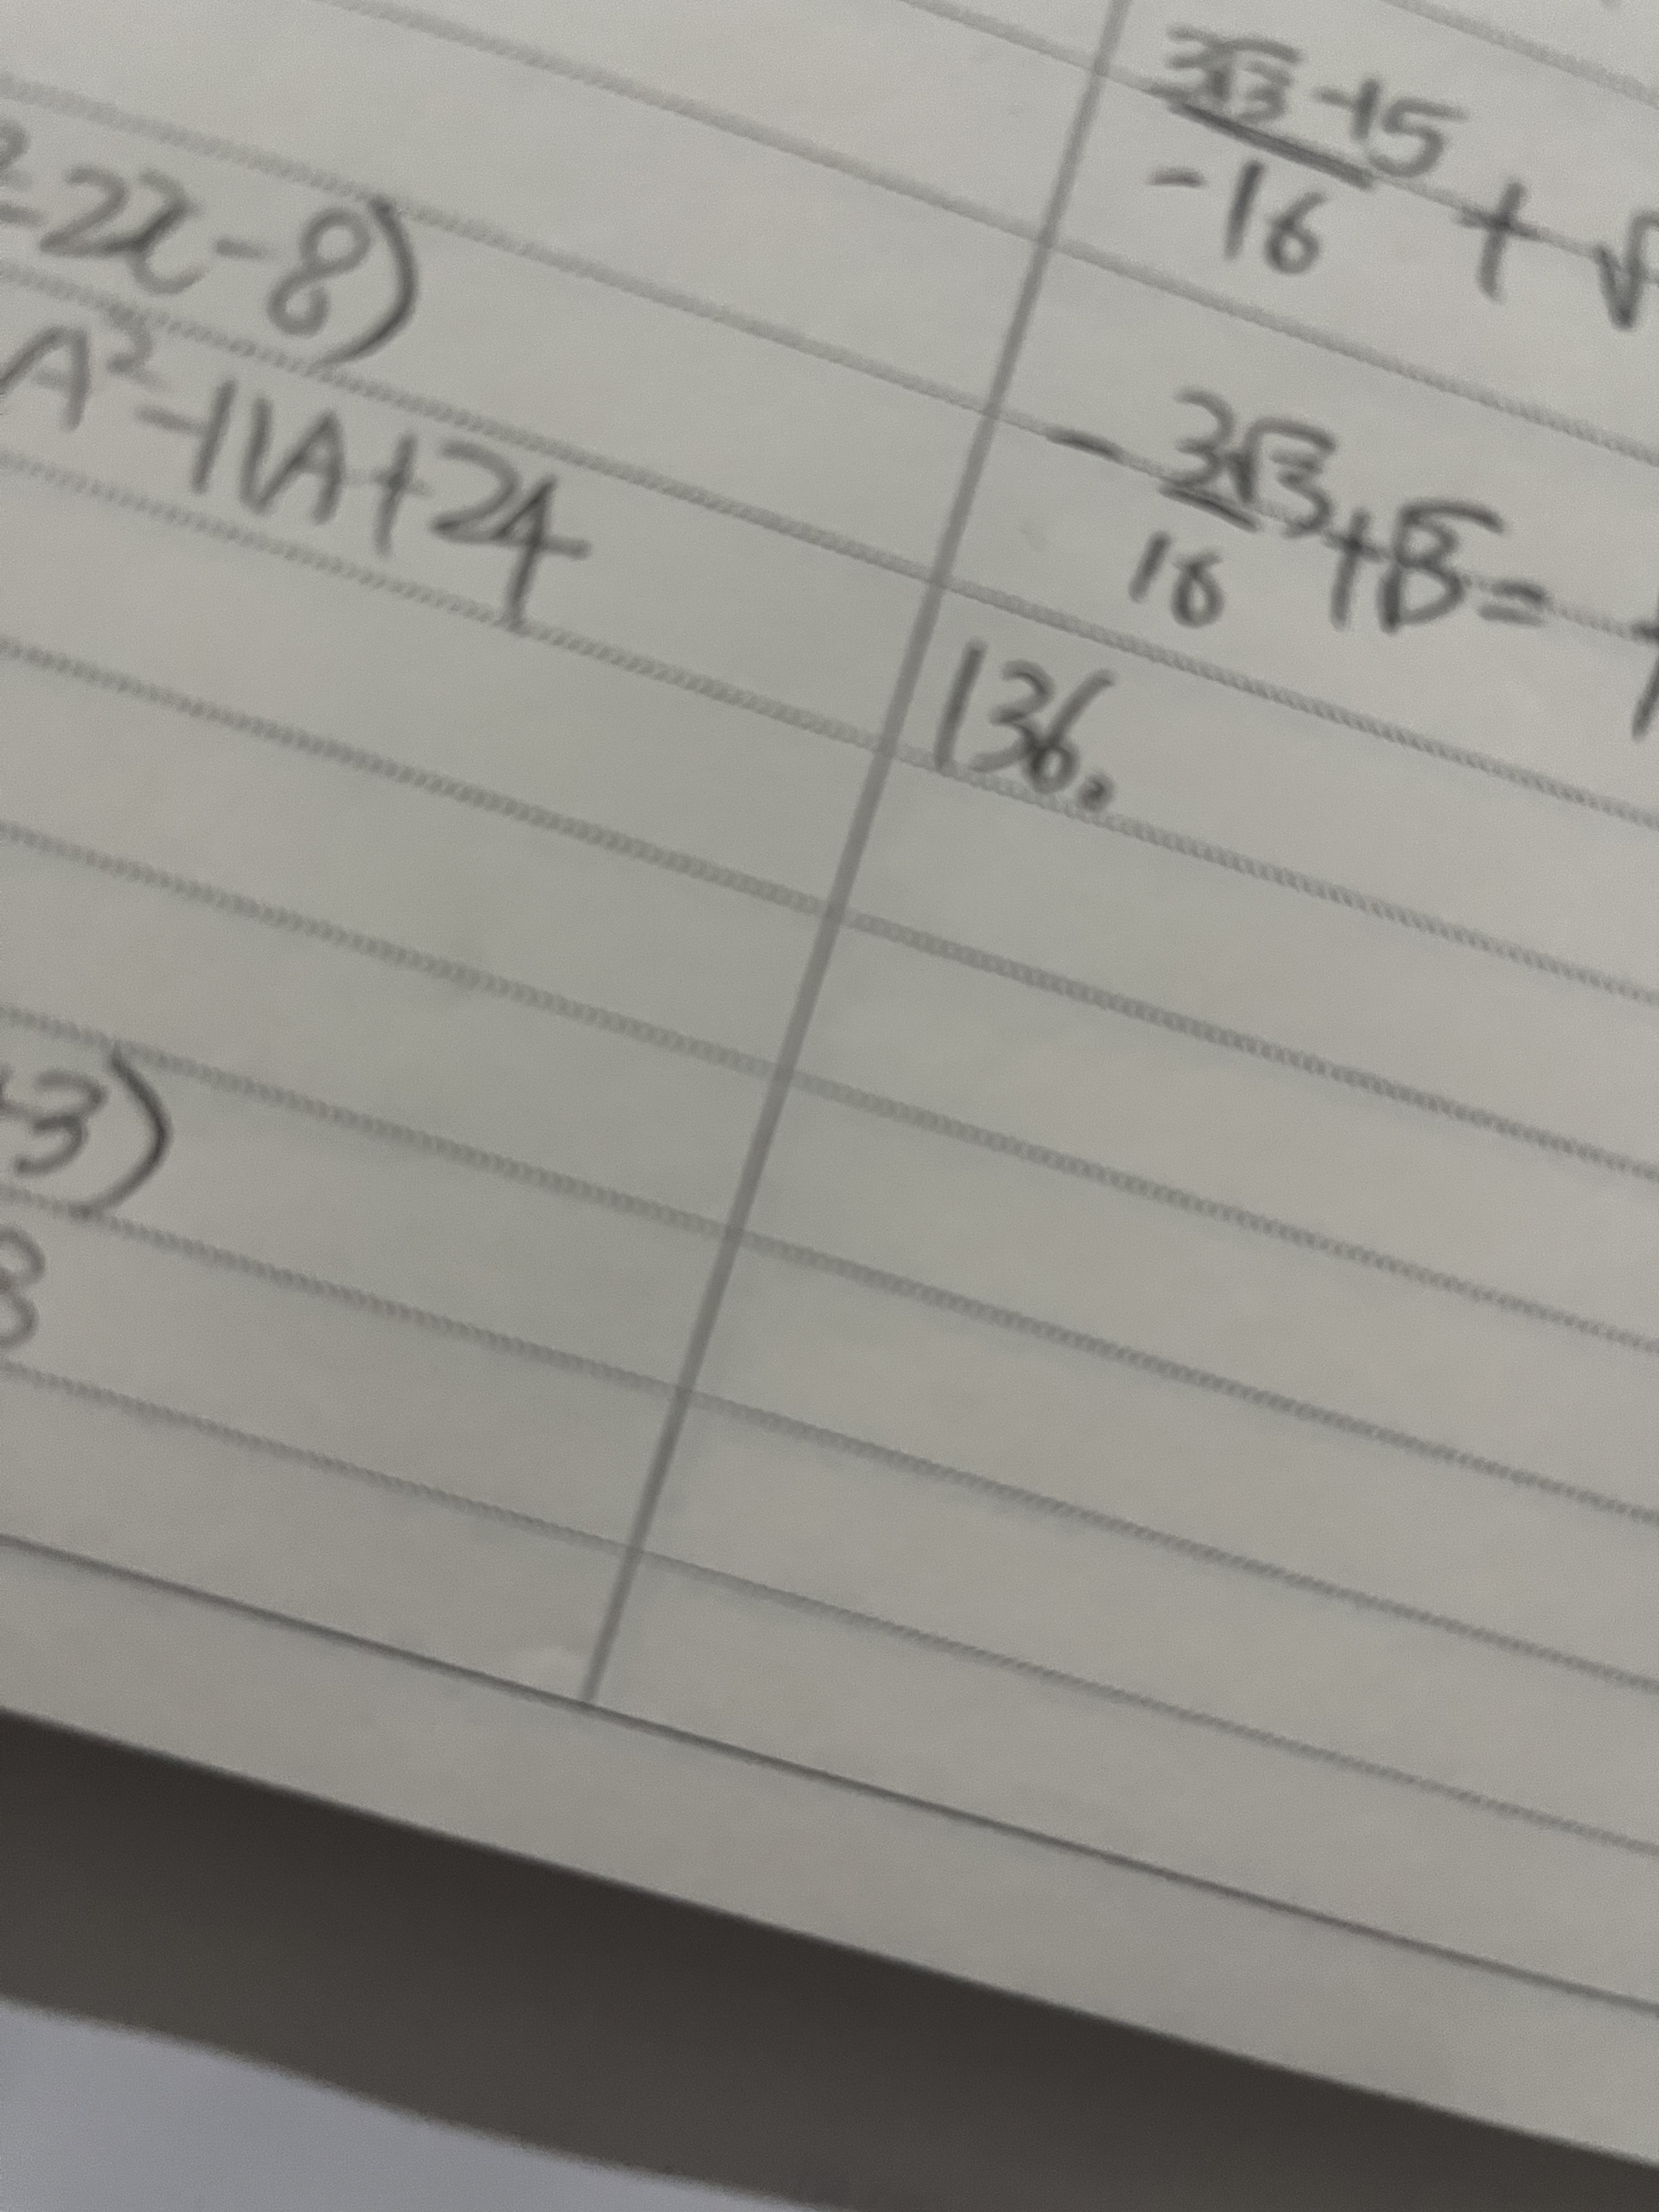 -2x-8)
A²-11A+24
+3)
3
-15
-16 + √
- 3√3/16 + √3 =
136.